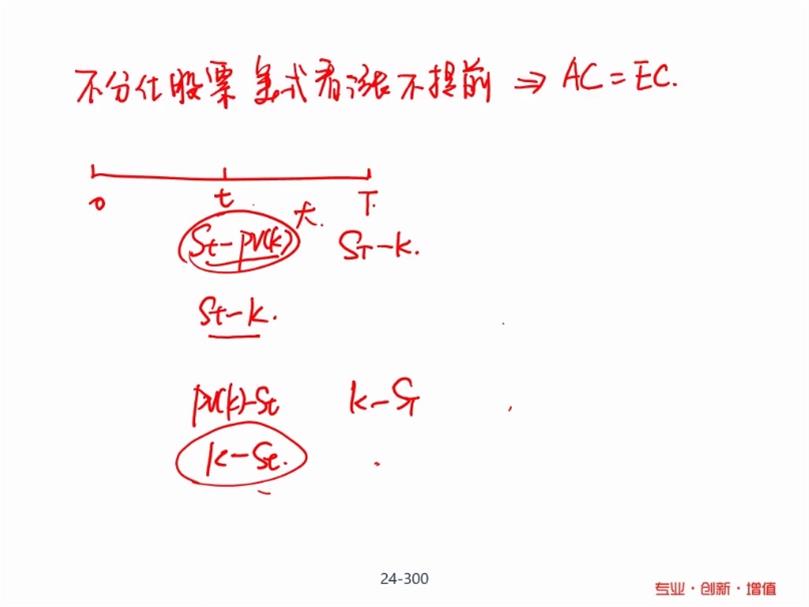 不分红股票美式看涨不提前 ⇒ AC = EC.
0 t T.
St-PV(k) 大. ST-k.
St-k.
PV(k)-St k-ST
k-St.
24-300
专业·创新·增值